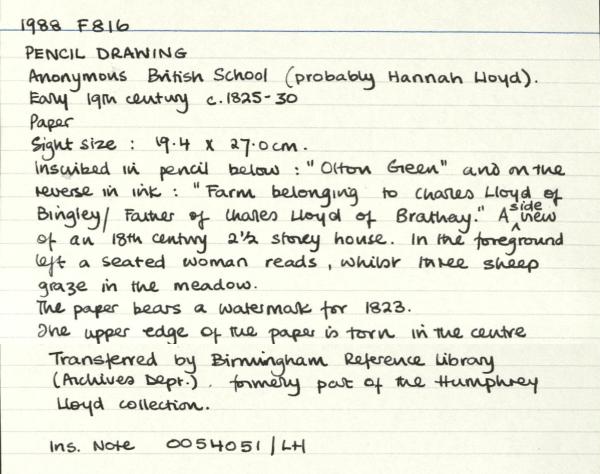 1988 F816
PENCIL DRAWING
Anonymous British School (probably Hannah Lloyd).
Early 19th century c.1825-30
Paper
Sight size : 19.4 x 27.0cm.
Inscribed in pencil below : "Olton Green" and on the
reverse in ink : "Farm belonging to Charles Lloyd of
Bingley/ Father of Charles Lloyd of Brathay." A side view
of an 18th century 2½ storey house. In the foreground
left a seated woman reads, whilst three sheep
graze in the meadow.
The paper bears a watermark for 1823.
The upper edge of the paper is torn in the centre
Transferred by Birmingham Reference Library
(Archives Dept.). formerly part of the Humphrey
Lloyd collection.
Ins. Note 0054051/LH